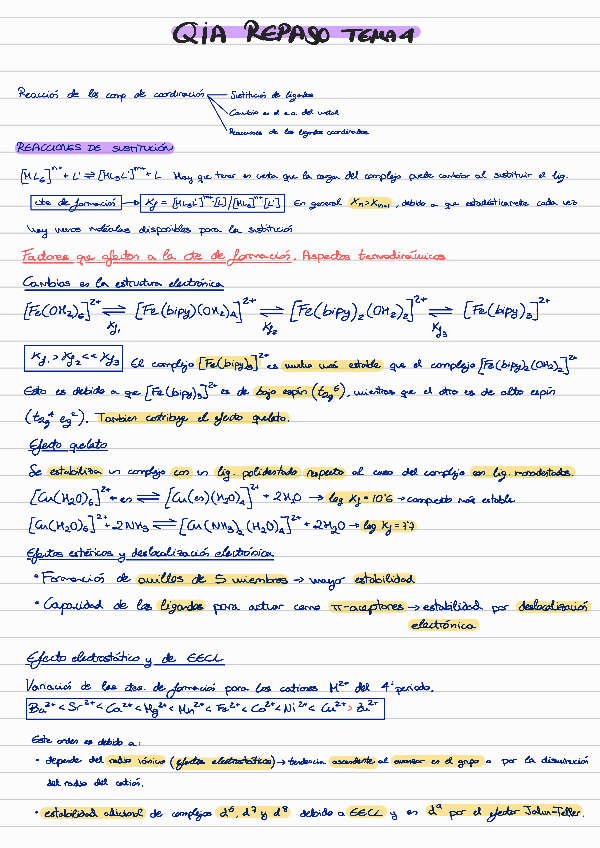 QIA REPASO TEMA 4
Reacción de los comp de coordinación
Sustitución de ligandos
Cambio en el e.o. del metal
Reacciones de los ligandos coordinados
REACCIONES DE SUSTITUCIÓN
[ML₆]ⁿ⁺ + L' ⇌ [ML₅L']ᵐ⁺ + L Hay que tener en cuenta que la carga del complejo puede cambiar al sustituir el lig.
cte de formación → Kf = [ML₅L']ᵐ⁺[L]/[ML₆]ⁿ⁺[L'] En general Kn>Kn+1, debido a que estadísticamente cada vez
hay menos moléculas disponibles para la sustitución
Factores que afectan a la cte de formación. Aspectos termodinámicos
Cambios en la estructura electrónica
[Fe(OH₂)₆]²⁺ ⇌ [Fe(bipy)(OH₂)₄]²⁺ ⇌ [Fe(bipy)₂(OH₂)₂]²⁺ ⇌ [Fe(bipy)₃]²⁺
Kf₁ Kf₂ Kf₃
Kf₁ > Kf₂ << Kf₃ El complejo [Fe(bipy)₃]²⁺ es mucho más estable que el complejo [Fe(bipy)₂(OH₂)₂]²⁺
Esto es debido a que [Fe(bipy)₃]²⁺ es de bajo espín (t₂g⁶), mientras que el otro es de alto espín
(t₂g⁴ eg²). Tambien contribuye el efecto quelato.
Efecto quelato
Se estabiliza un complejo con un lig. polidentado respecto al caso del complejo con lig. monodentados.
[Cu(H₂O)₆]²⁺ + en ⇌ [Cu(en)(H₂O)₄]²⁺ + 2H₂O → log Kf = 10'6 → compuesto más estable
[Cu(H₂O)₆]²⁺ + 2NH₃ ⇌ [Cu(NH₃)₂(H₂O)₄]²⁺ + 2H₂O → log Kf = 7'7
Efectos estéricos y deslocalización electrónica
• Formación de anillos de 5 miembros → mayor estabilidad
• Capacidad de los ligandos para actuar como π-aceptores → estabilidad por deslocalización
electrónica
Efecto electrostático y de EECL
Variación de las ctes. de formación para los cationes M²⁺ del 4º periodo.
Ba²⁺ < Sr²⁺ < Ca²⁺ < Mg²⁺ < Mn²⁺ < Fe²⁺ < Co²⁺ < Ni²⁺ < Cu²⁺ > Zn²⁺
Este orden es debido a:
• depende del radio iónico (efectos electrostáticos) → tendencia ascendente al avanzar en el grupo o por la disminución
del radio del catión.
• estabilidad adicional de complejos d⁶, d⁷ y d⁸ debido a EECL y en d⁹ por el efector Jahn-Teller.